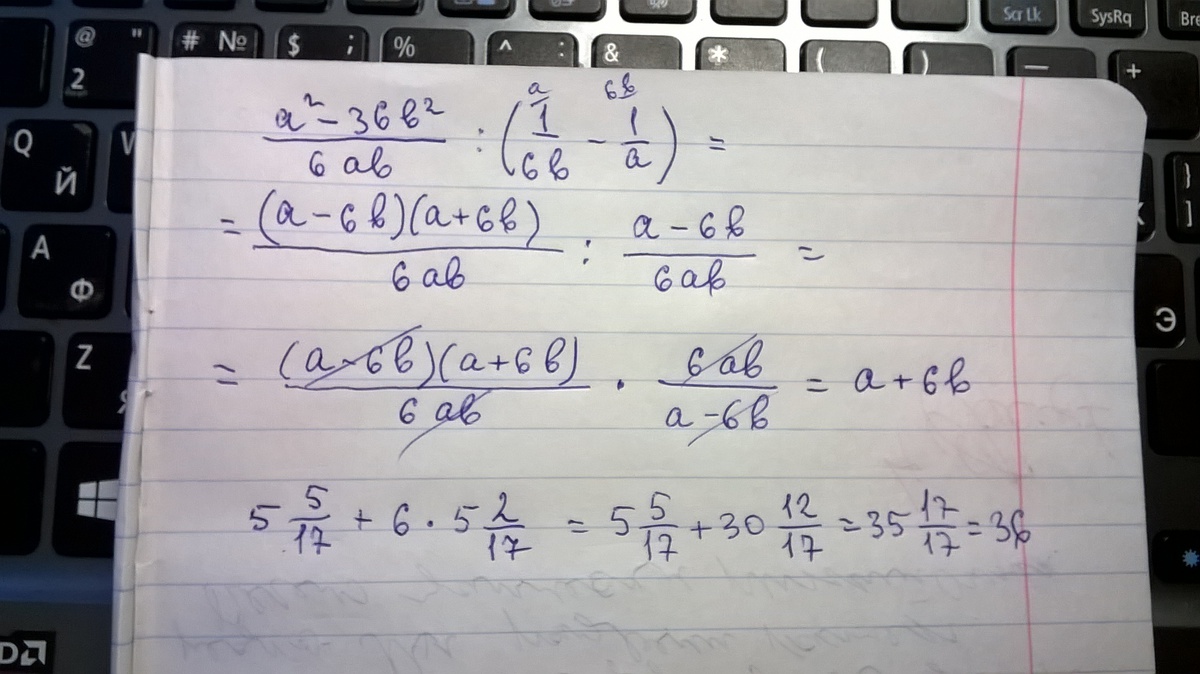 Scr Lk SysRq Bre
@ " 2 # № $ ; % ^ : & * ( ) — +
Q Й
A Ф
Z
} ]
Э
a 6b
(a² - 36b²)/(6ab) : (1/(6b) - 1/a) =
= ((a - 6b)(a + 6b))/(6ab) : (a - 6b)/(6ab) =
= ((a - 6b)(a + 6b))/(6ab) · (6ab)/(a - 6b) = a + 6b
5 5/17 + 6 · 5 2/17 = 5 5/17 + 30 12/17 = 35 17/17 = 36